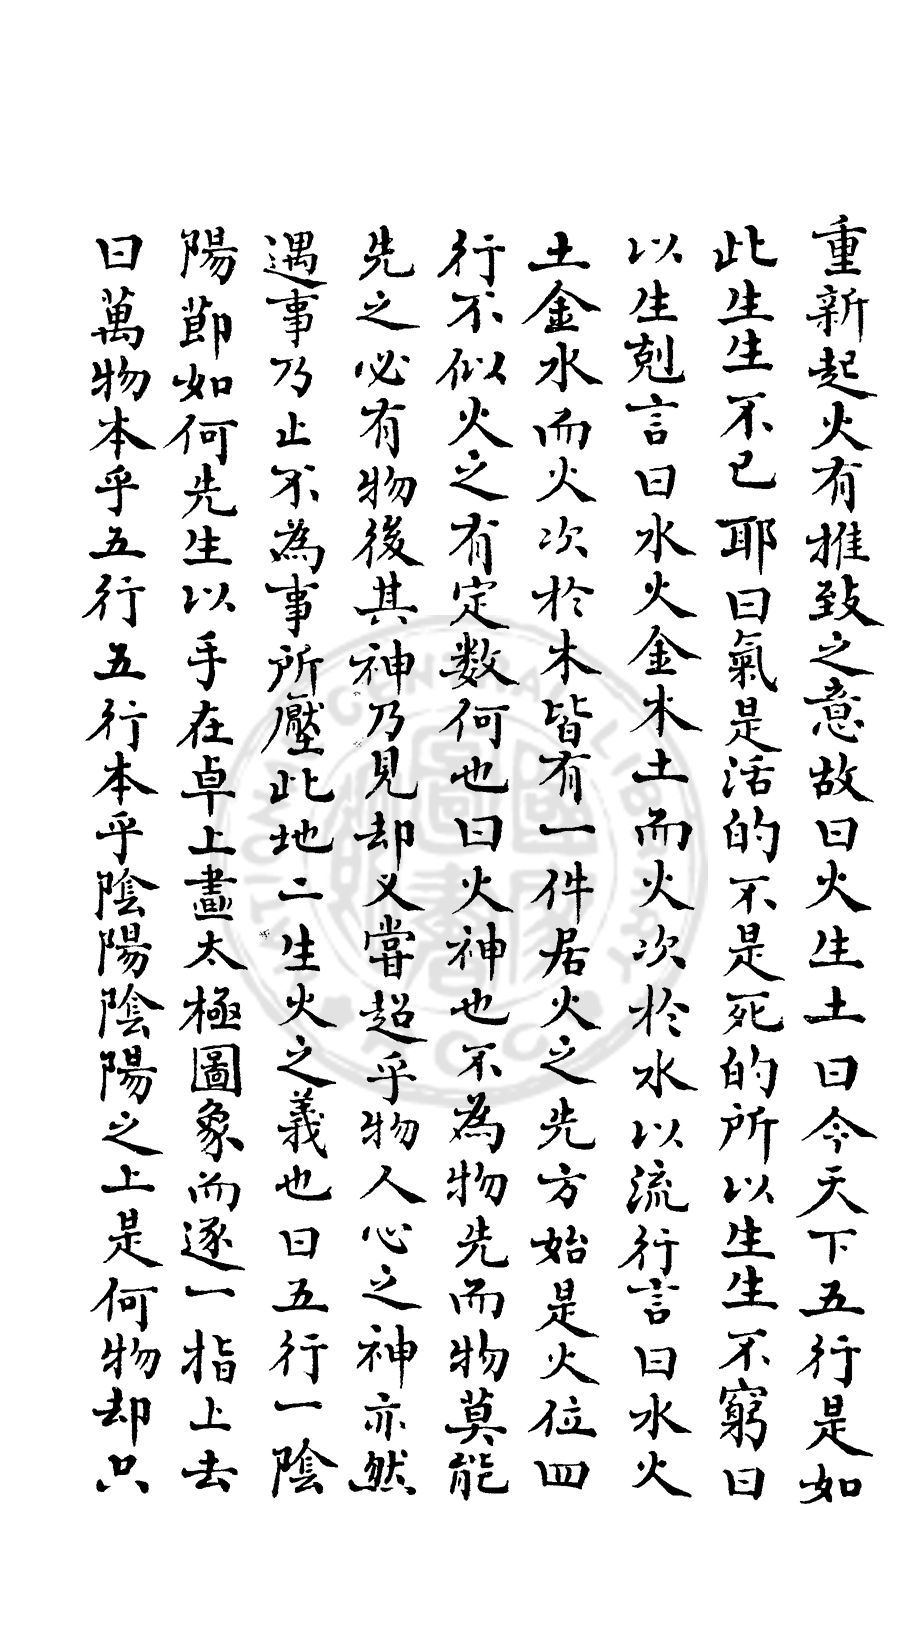 重新起火有推致之意故曰火生土曰今天下五行是如
此生生不已耶曰氣是活的不是死的所以生生不窮曰
以生剋言曰水火金木土而火次於水以流行言曰水火
土金水而火次於木皆有一件居火之先方始是火位四
行不似火之有定数何也曰火神也不為物先而物莫能
先之必有物後其神乃見却又嘗超乎物人心之神亦然
遇事乃止不為事所壓此地二生火之義也曰五行一陰
陽節如何先生以手在卓上畫太極圖象而逐一指上去
曰萬物本乎五行五行本乎陰陽陰陽之上是何物却只